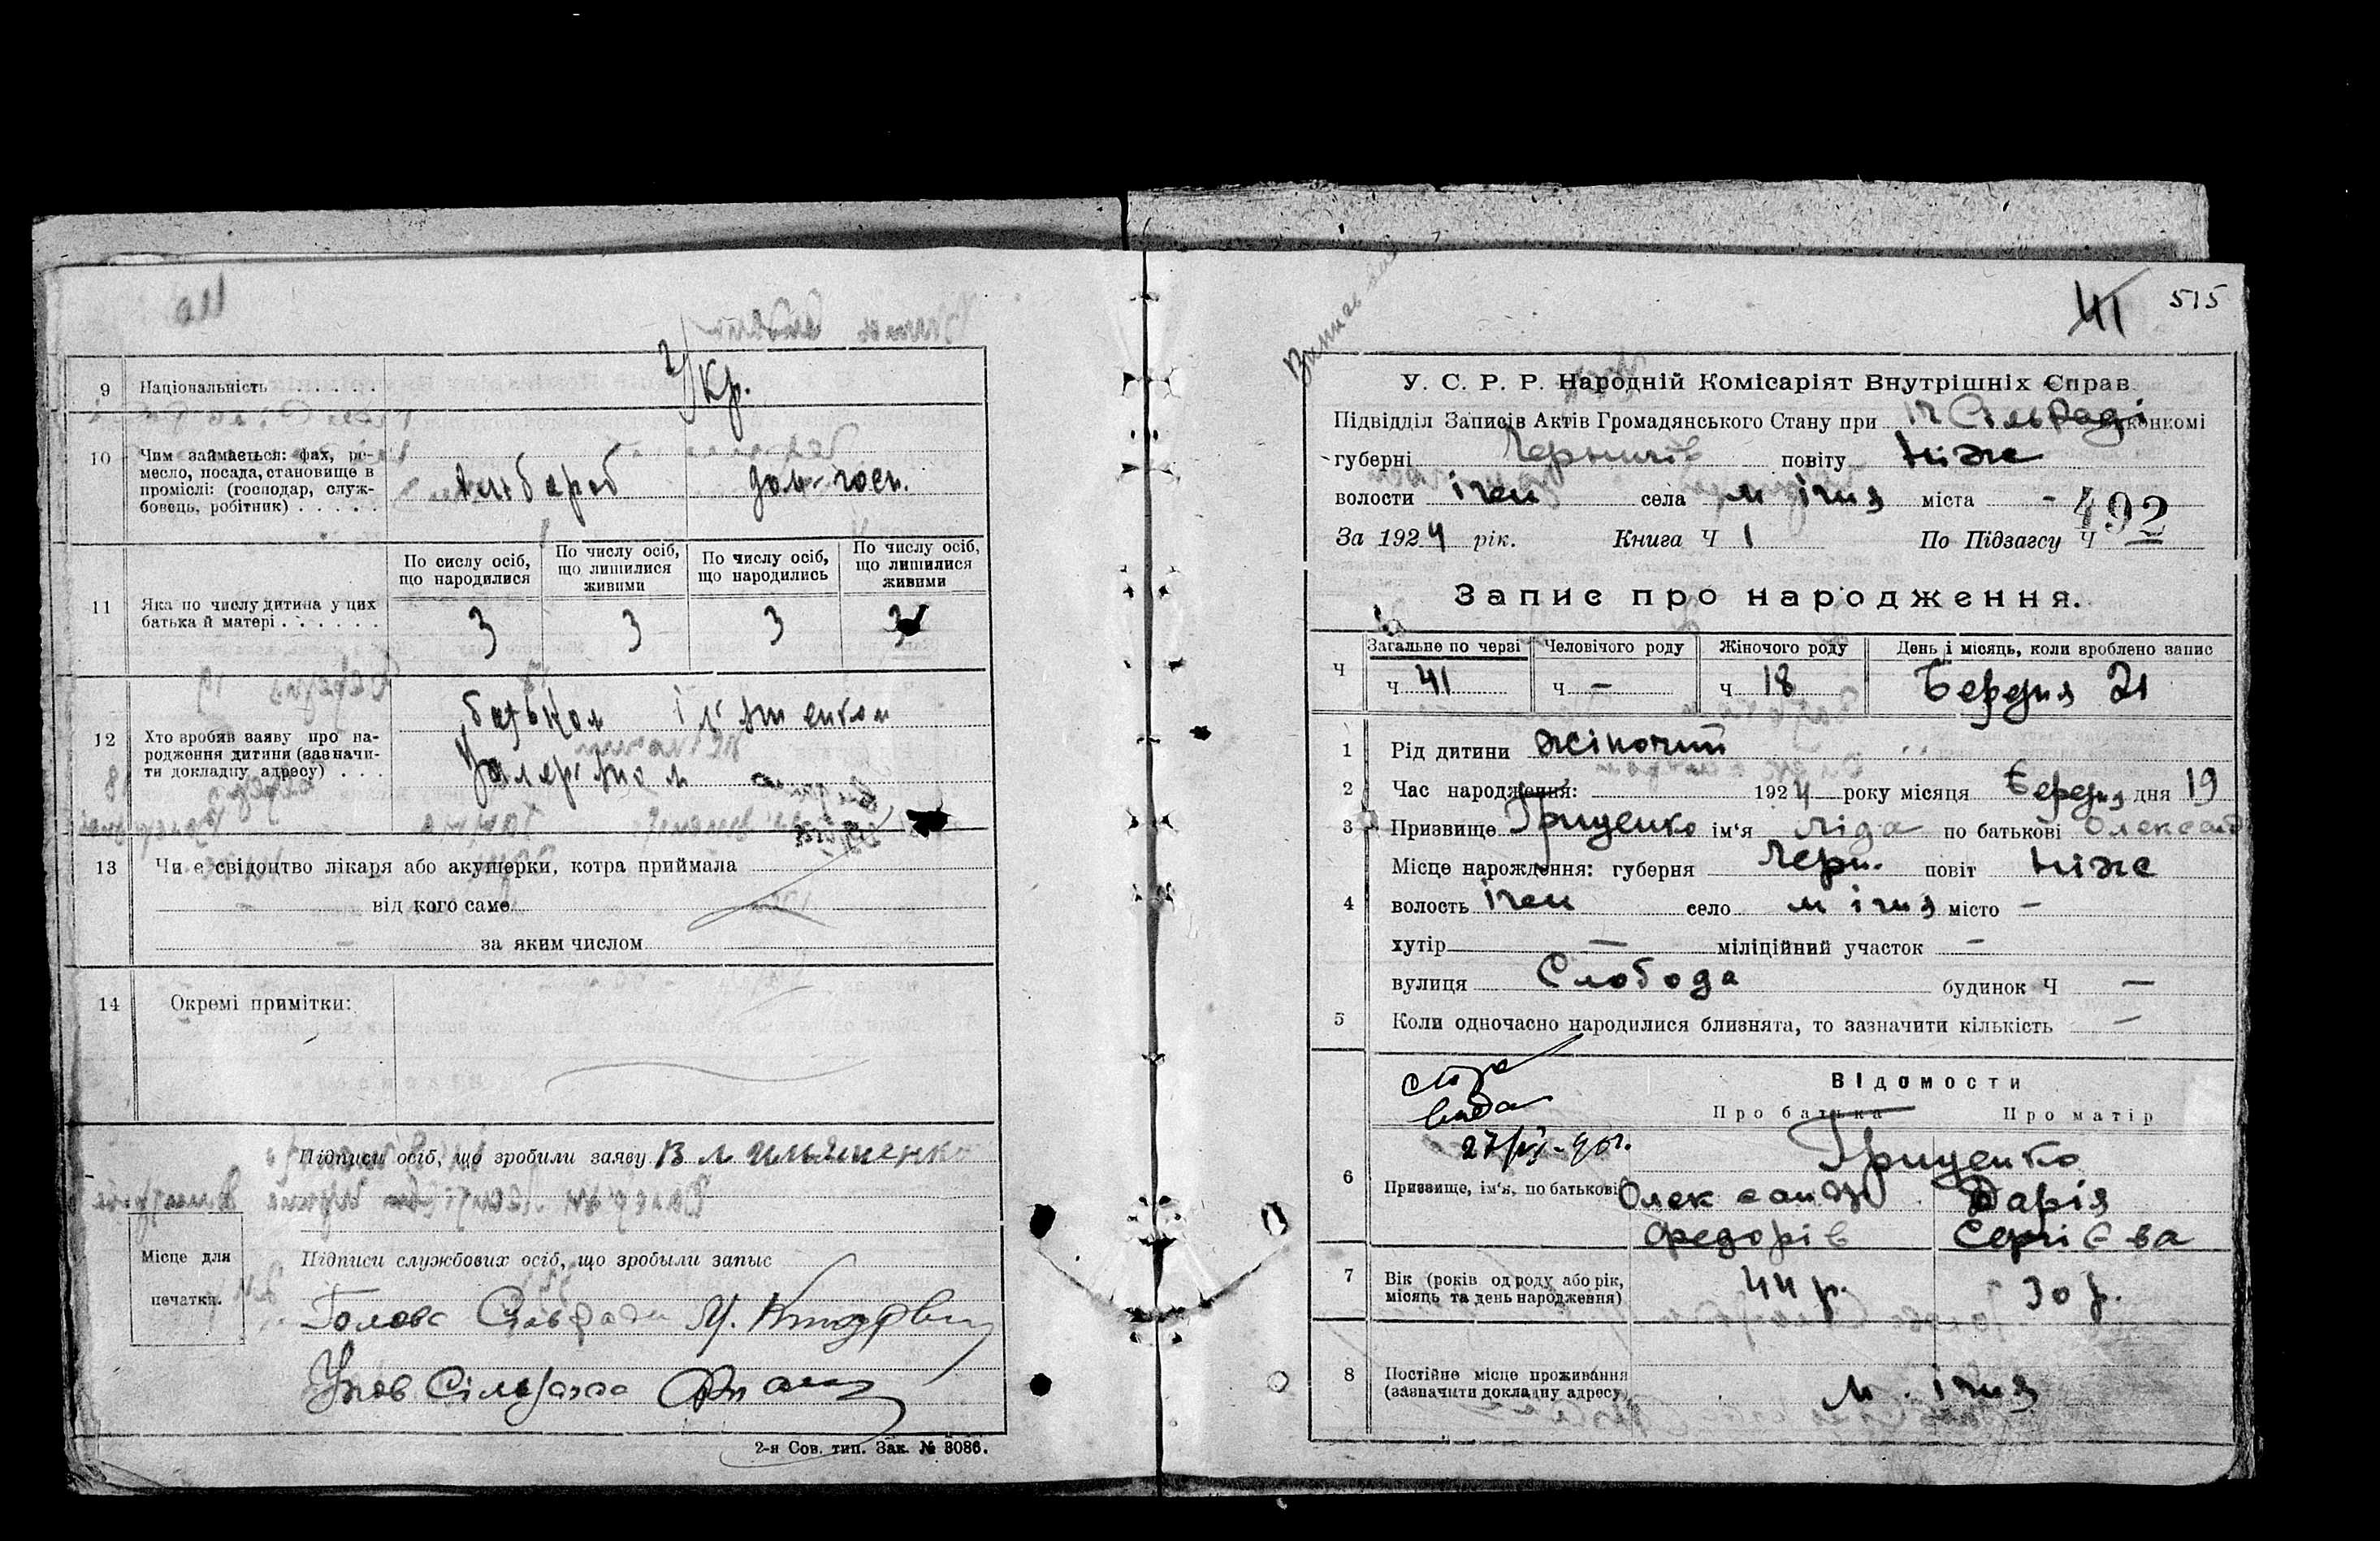 9 Національність . . . . . Укр.
10 Чим займається: фах, ре-
месло, посада, становище в
проміслі: (господар, служ-
бовець, робітник) . . . . . дом. госп.
По сислу осіб,
що народилися
По числу осіб,
що лишилися
живими
По числу осіб,
що народились
По числу осіб,
що лишилися
живими
11 Яка по числу дитина у цих
батька й матері . . . . . . 3 3 3 3
12 Хто вробив заяву про на-
родження дитини (зазначи-
ти докладну адресу) . . .
батьком
13 Чи є свідоцтво лікаря або акушерки, котра приймала
від кого саме
за яким числом
14 Окремі примітки:
Підписи осіб, що зробили заяву В Л Ильяшенко
Місце для
печатки.
Підписи службових осіб, що зробыли запыс
Голова Сільради М.
2-я Сов. тип. Зак. № 3086.
41 515
У. С. Р. Р. Народній Комісаріят Внутрішніх Справ.
Підвідділ Записів Актів Громадянського Стану при Іч Сільраді конкомі
губерні Черниг повіту Ніже
волости Ічен села м Ічня міста -
За 1924 рік. Книга Ч 1 По Підзагсу Ч 492
Запис про народження.
Ч Загальне по черзі Человічого роду Жіночого роду День і місяць, коли вроблено запис
Ч 41 Ч — Ч 18 Березня 21
1 Рід дитини жіночий
2 Час народження: 1924 року місяця Березня дня 19
3 Призвище Грищенко ім'я Ліда по батькові Олександ
4 Місце нарождення: губерня Черн. повіт Ніже
волость Ічен село м Ічня місто —
хутір — міліційний участок —
вулиця Слобода будинок Ч —
5 Коли одночасно народилися близнята, то зазначити кількість —
ВІДОМОСТИ
Про батька Про матір
6 Призвище, ім'я, по батькові
Грищенко
Олександр Дарія
Федорів Сергієва
7 Вік (років од роду або рік,
місяць та день народження) 44 р. 30 р.
8 Постійне місце проживання
(зазначити докладну адресу) м. Ічня